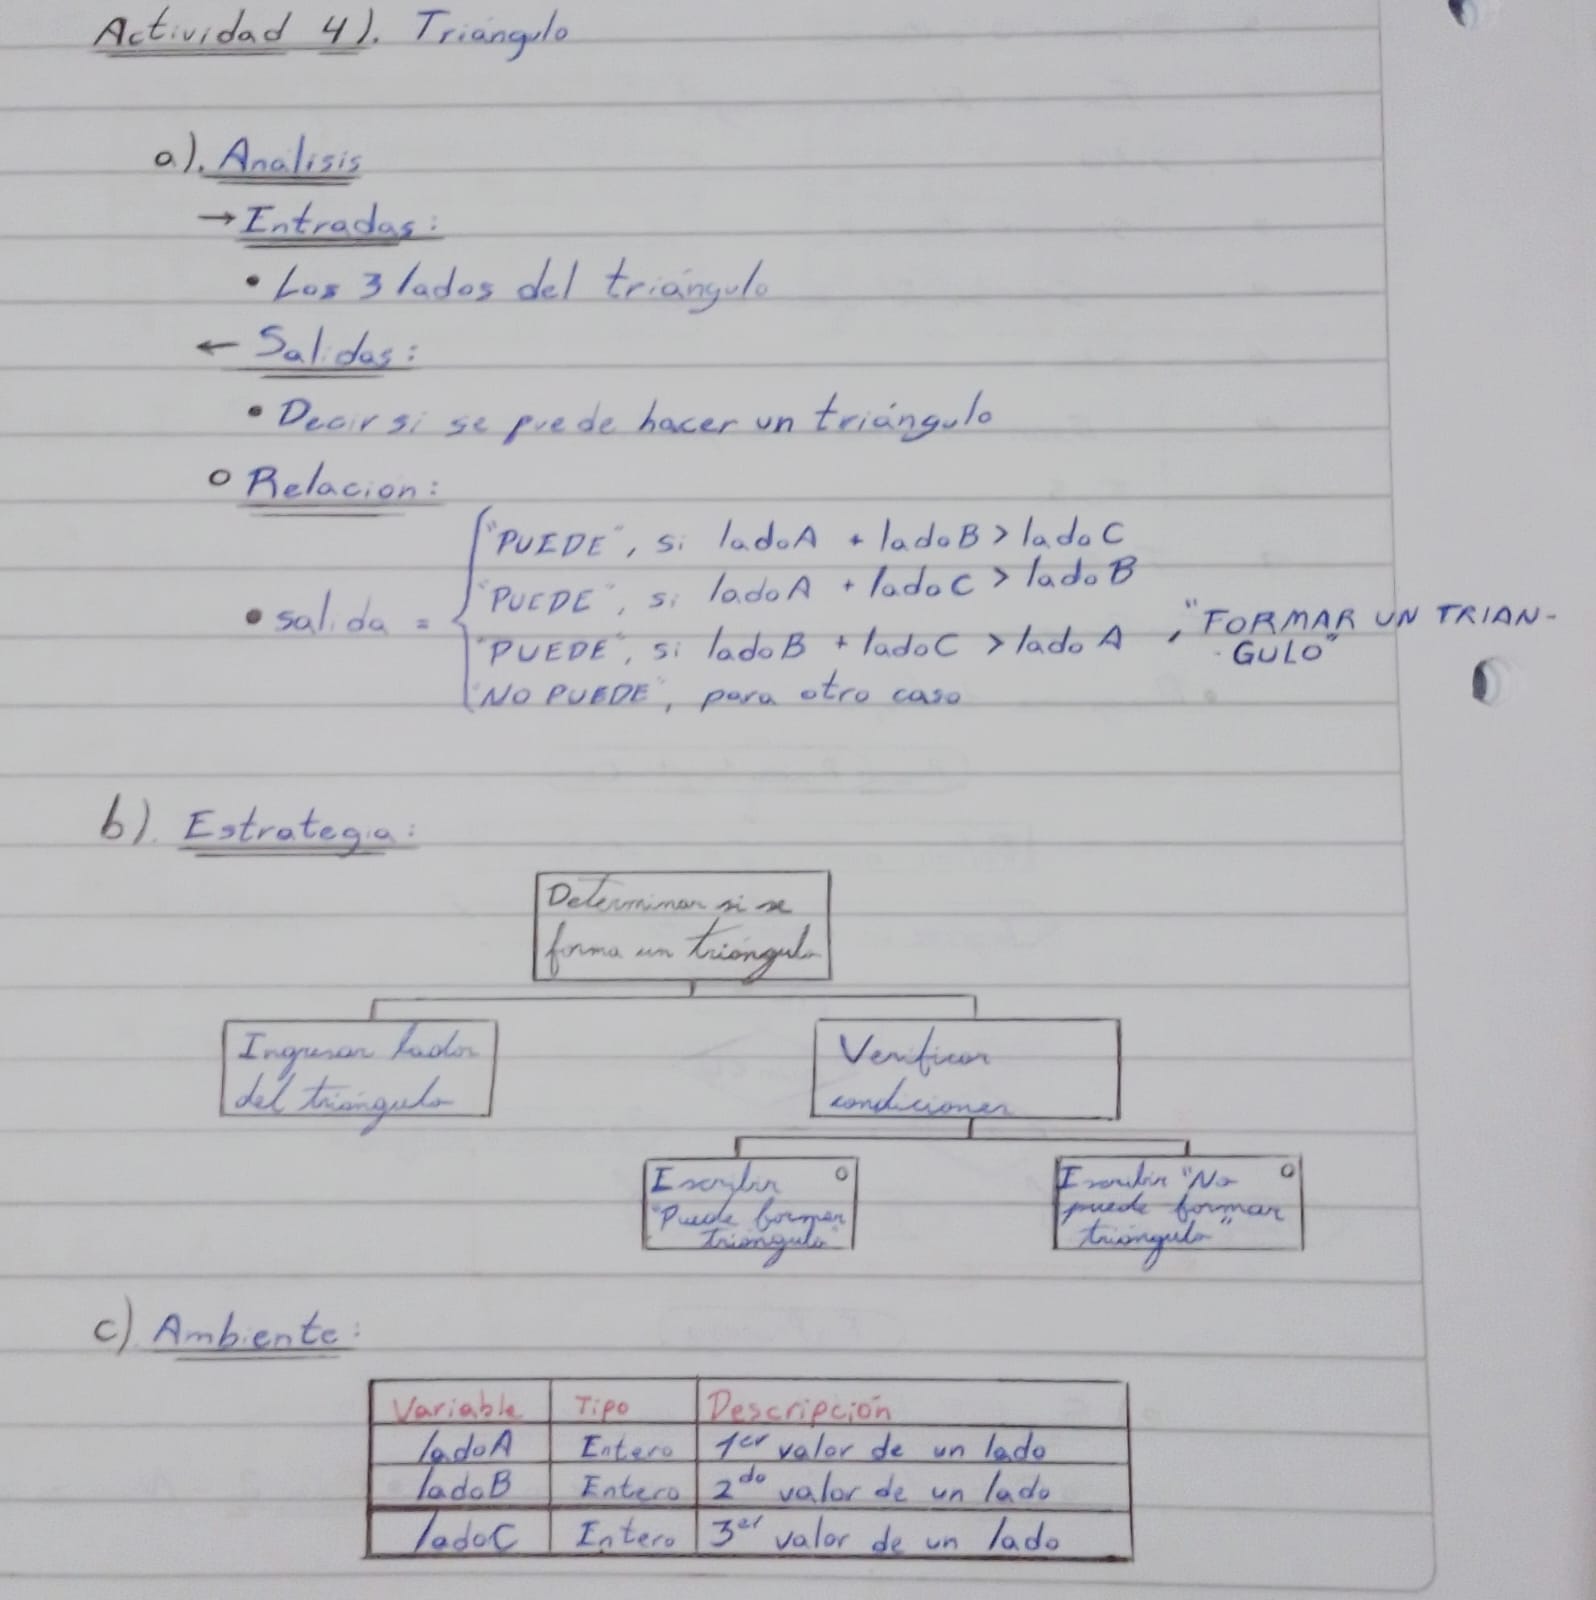 Actividad 4). Triángulo
a). Análisis
→ Entradas:
• Los 3 lados del triángulo
← Salidas:
• Decir si se puede hacer un triángulo
o Relacion:
• salida =
"PUEDE", si ladoA + ladoB > ladoC
"PUEDE", si ladoA + ladoC > ladoB
"PUEDE", si ladoB + ladoC > ladoA
"NO PUEDE", para otro caso
, "FORMAR UN TRIAN-
GULO"
b). Estrategia:
Determinar si se
forma un triángulo
Ingresar lados
del triángulo
Verificar
condiciones
Escribir
"Puede formar
triángulo"
Escribir "No
puede formar
triángulo"
c) Ambiente:
Variable Tipo Descripción
ladoA Entero 1er valor de un lado
ladoB Entero 2do valor de un lado
ladoC Entero 3er valor de un lado